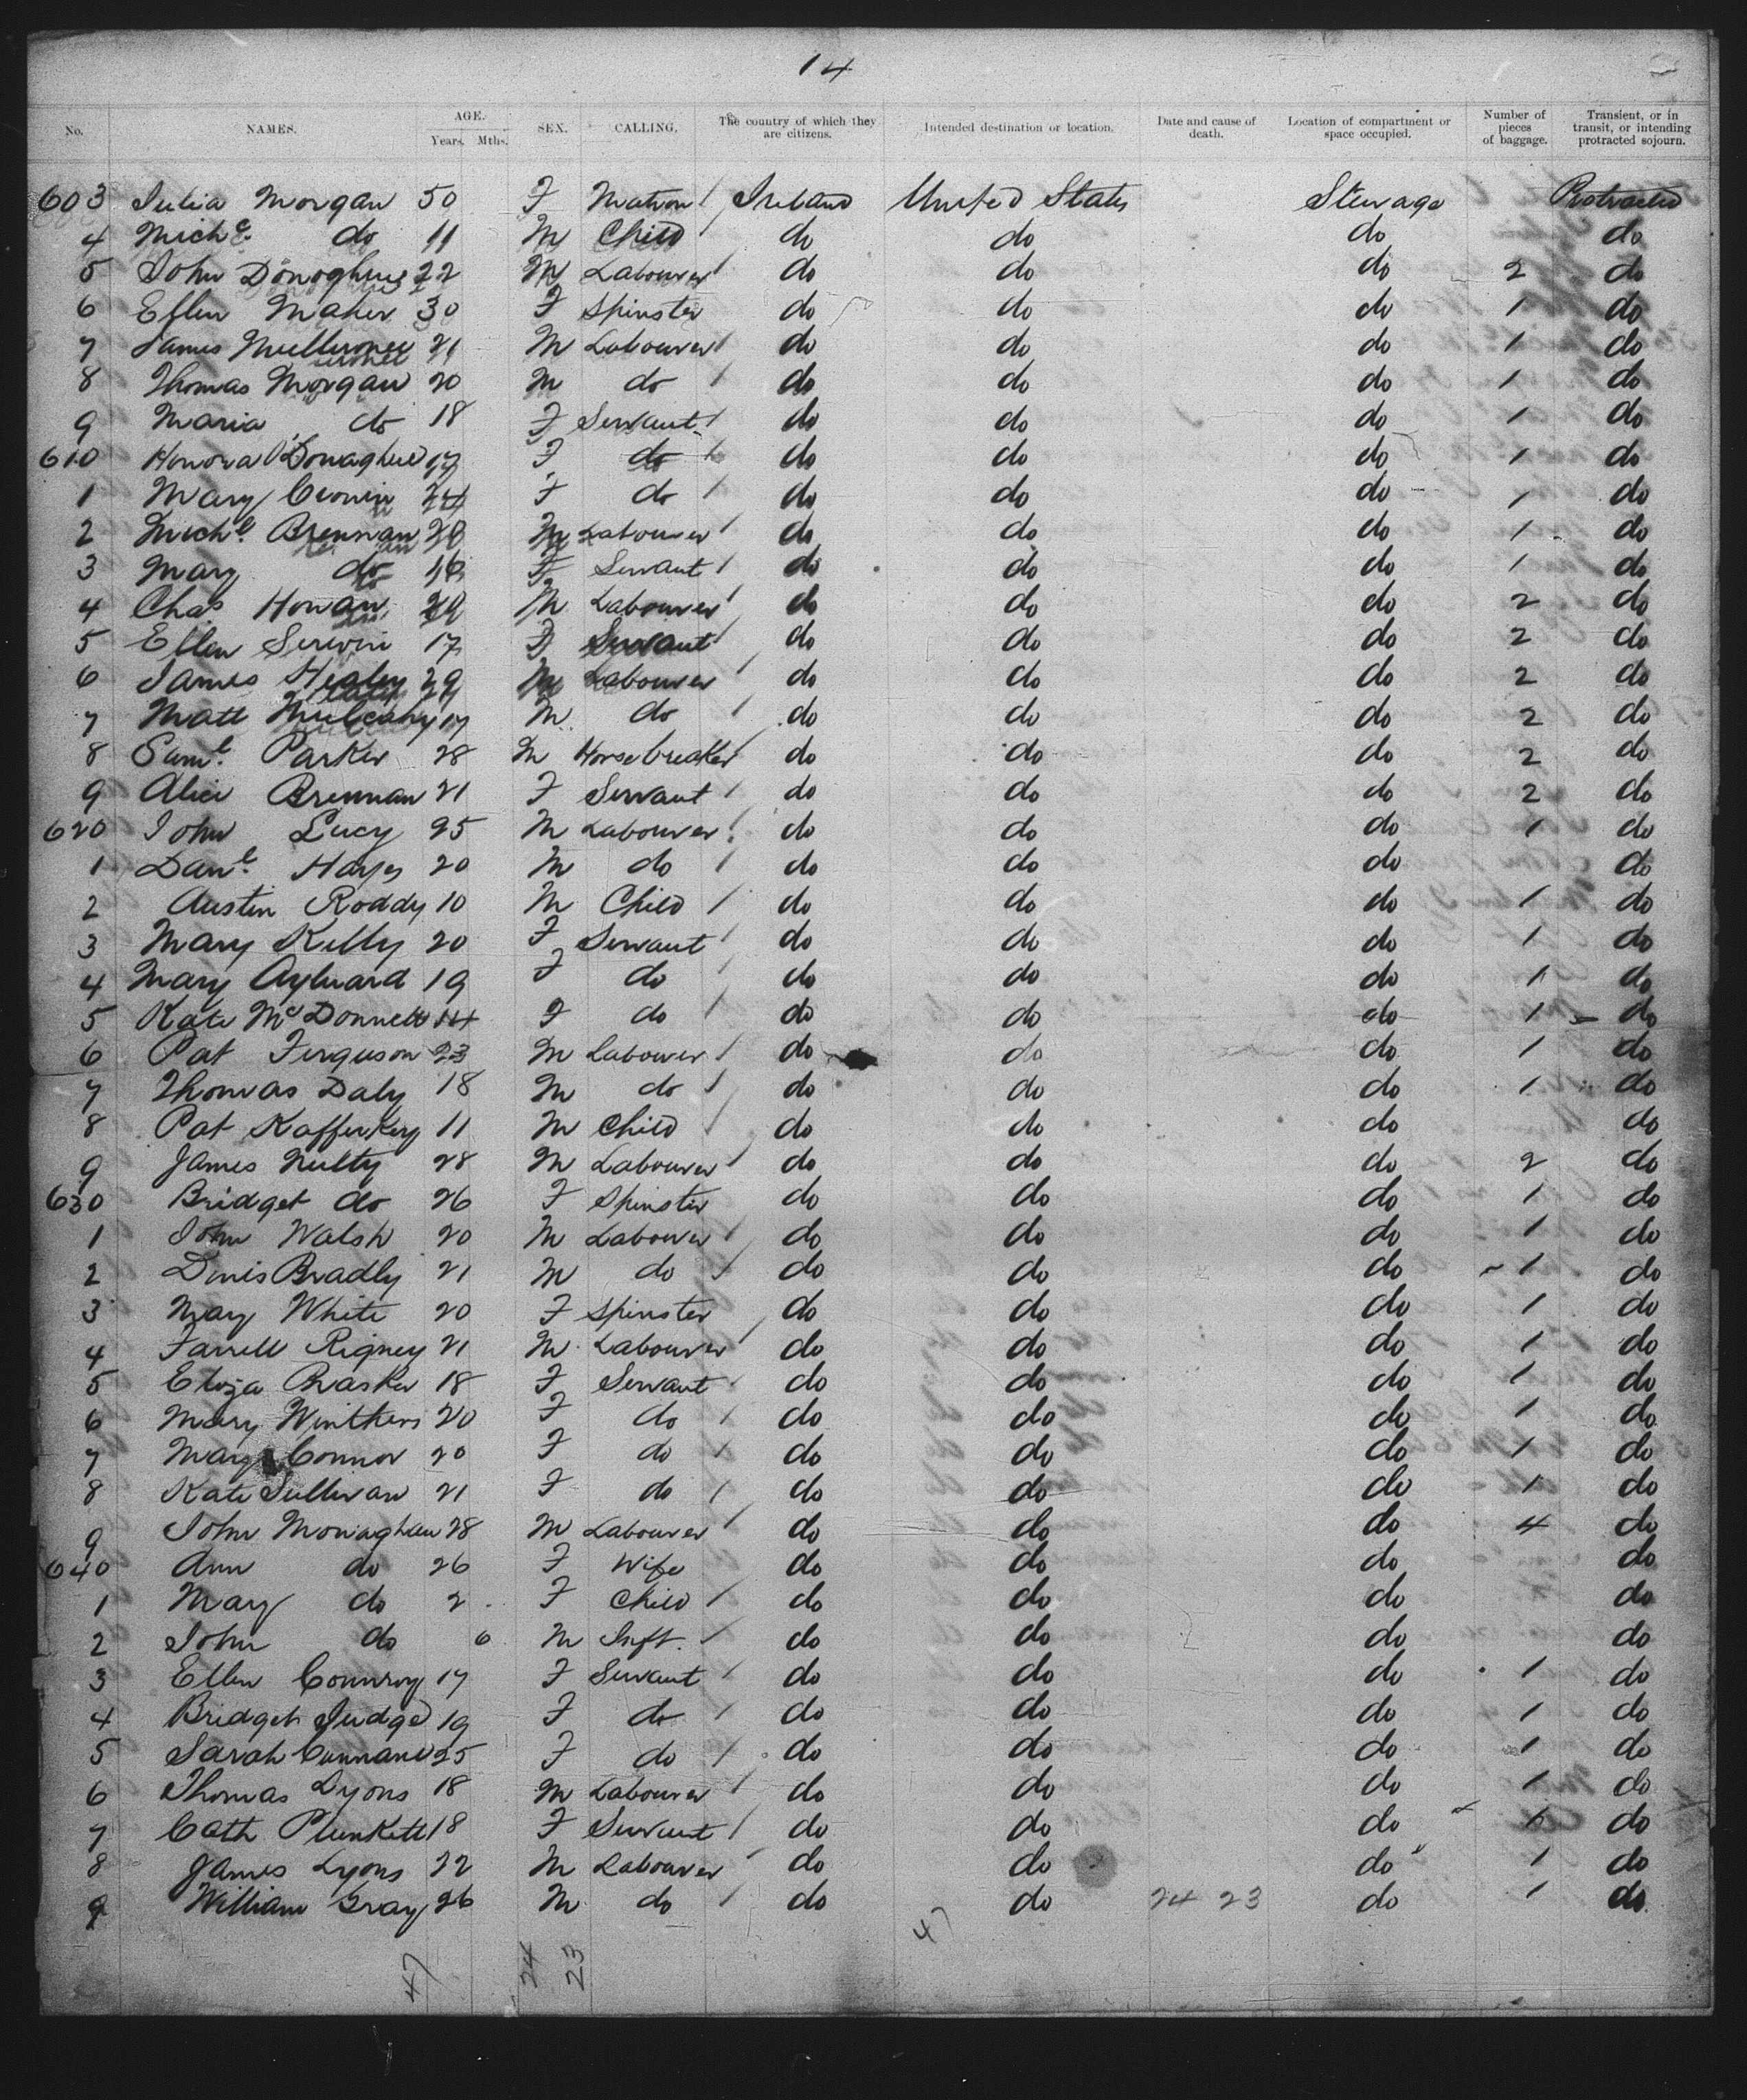 14
No. NAMES. AGE. Years. Mths. SEX. CALLING. The country of which they are citizens. Intended destination or location. Date and cause of death. Location of compartment or space occupied. Number of pieces of baggage. Transient, or in transit, or intending protracted sojourn.
603 Julia Morgan 50 F Matron Ireland United States Steerage Protracted
4 Michl. do 11 M Child do do do do
5 John Donoghue 22 M Labourer do do do 2 do
6 Ellen Maher 30 F Spinster do do do 1 do
7 James 21 M Labourer do do do 1 do
8 Thomas Morgan 20 M do do do do 1 do
9 Maria do 18 F Servant do do do 1 do
610 Honora O'Donaghue 17 F do do do do 1 do
1 Mary Cronin 24 F do do do do 1 do
2 Michl. Brennan 20 M Labourer do do do 1 do
3 Mary do 16 F Servant do do do 1 do
4 Chas Honan M Labourer do do do 2 do
5 Ellen 17 F Servant do do do 2 do
6 James Healey 29 M Labourer do do do 2 do
7 Matt Mulcahy 17 M do do do do 2 do
8 Saml. Parker 28 M Horsebreaker do do do 2 do
9 Alice Brennan 21 F Servant do do do 2 do
620 John Lucy 25 M Labourer do do do 1 do
1 Danl. Hayes 20 M do do do do do
2 Austin Roddy 10 M Child do do do 1 do
3 Mary Kelly 20 F Servant do do do 1 do
4 Mary Aylward 19 F do do do do 1 do
5 Kate McDonnell 14 F do do do do 1 do
6 Pat Ferguson 23 M Labourer do do do 1 do
7 Thomas Daly 18 M do do do do 1 do
8 Pat Kafferkey 11 M Child do do do do
9 James Nulty 28 M Labourer do do do 2 do
630 Bridget do 26 F Spinster do do do 1 do
1 John Walsh 20 M Labourer do do do 1 do
2 Denis Bradly 21 M do do do do 1 do
3 Mary White 20 F Spinster do do do 1 do
4 Farrell Rigney 21 M Labourer do do do 1 do
5 Eliza 18 F Servant do do do 1 do
6 Mary Winthers 20 F do do do do 1 do
7 Mary Connor 20 F do do do do 1 do
8 Kate Sullivan 21 F do do do do 1 do
9 John Monaghan 28 M Labourer do do do 4 do
640 Ann do 26 F Wife do do do do
1 Mary do 2 F Child do do do do
2 John do 6 M Inft. do do do do
3 Ellen Connroy 17 F Servant do do do 1 do
4 Bridget Judge 19 F do do do do 1 do
5 Sarah Cunnane 25 F do do do do 1 do
6 Thomas Lyons 18 M Labourer do do do 1 do
7 Cath Plunkett 18 F Servant do do do do
8 James Lyons 22 M Labourer do do do 1 do
9 William Gray 26 M do do do 24 23 do 1 do
47 24 23 47